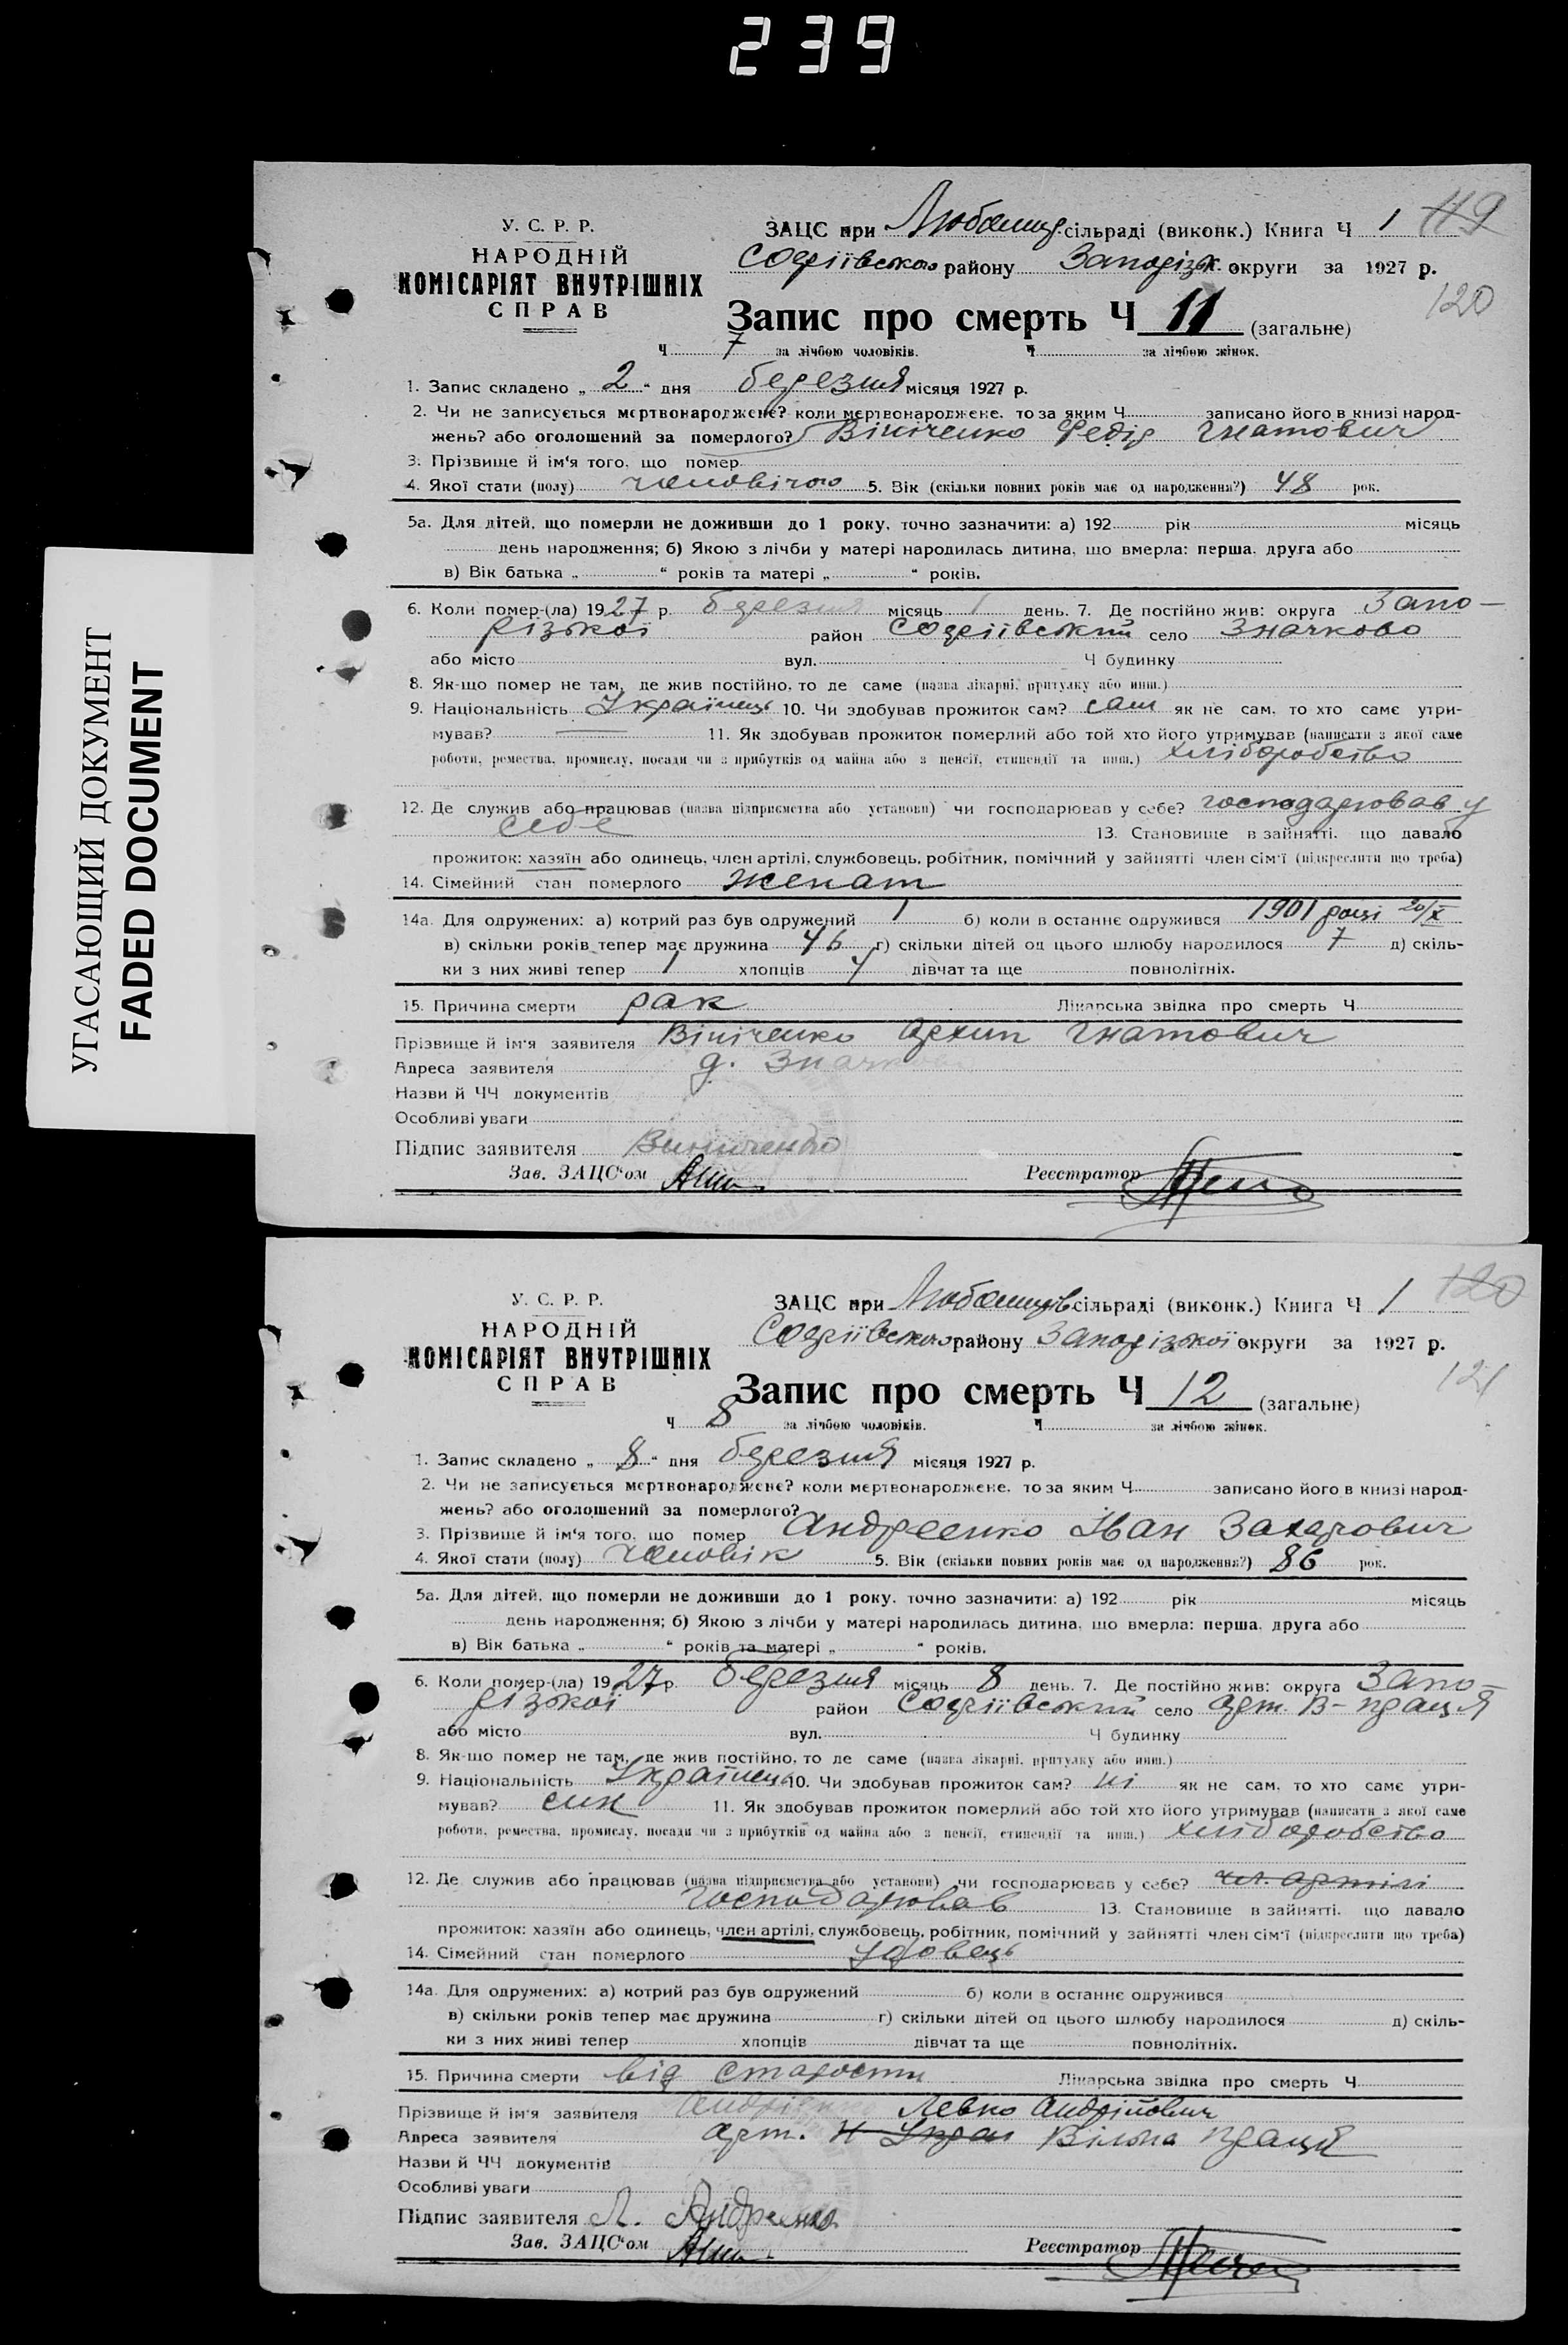 239
УГАСАЮЩИЙ ДОКУМЕНТ
FADED DOCUMENT
У. С. Р. Р.
НАРОДНІЙ
КОМІСАРІЯТ ВНУТРІШНІХ
СПРАВ
ЗАЦС при сільраді (виконк.) Книга Ч 1 119
Софіївського району Запоріз. округи за 1927 р.
120
Запис про смерть Ч 11 (загальне)
Ч 7 за лічбою чоловіків. Ч за лічбою жінок.
1. Запис складено „ 2 “ дня березня місяця 1927 р.
2. Чи не записується мертвонароджене? коли мертвонароджене. то за яким Ч записано його в книзі народ-
жень? або оголошений за померлого? Вініченко Федір Гнатович
3. Прізвище й ім'я того, що помер
4. Якої стати (полу) чоловічого 5. Вік (скільки повних років має од народження?) 48 рок.
5а. Для дітей, що померли не доживши до 1 року, точно зазначити: а) 192 рік місяць
день народження; б) Якою з лічби у матері народилась дитина, що вмерла: перша, друга або
в) Вік батька „ “ років та матері „ “ років.
6. Коли помер-(ла) 1927 р. березня місяць 1 день. 7. Де постійно жив: округа Запо-
різької район Софіївський село Значково
або місто вул. Ч будинку
8. Як-що помер не там, де жив постійно, то де саме (назва лікарні, притулку або инш.)
9. Національність Українець 10. Чи здобував прожиток сам? сам як не сам, то хто саме утри-
мував? 11. Як здобував прожиток померлий або той хто його утримував (написати з якої саме
роботи, ремества, промислу, посади чи з прибутків од майна або з пенсії, стипендії та инш.) хліборобство
12. Де служив або працював (назва підприємства або установи) чи господарював у себе? господарював у
себе 13. Становище в зайнятті, що давало
прожиток: хазяїн або одинець, член артілі, службовець, робітник, помічний у зайнятті член сім'ї (підкреслити що треба)
14. Сімейний стан померлого женат
14а. Для одружених: а) котрий раз був одружений 1 б) коли в останнє одружився 1901 році 20/X
в) скільки років тепер має дружина 46 г) скільки дітей од цього шлюбу народилося 7 д) скіль-
ки з них живі тепер 1 хлопців 4 дівчат та ще повнолітніх.
15. Причина смерти рак Лікарська звідка про смерть Ч
Прізвище й ім'я заявителя Вініченко Архип Гнатович
Адреса заявителя д. Значково
Назви й ЧЧ документів
Особливі уваги
Підпис заявителя Винниченко
Зав. ЗАЦС'ом Реєстратор
У. С. Р. Р.
НАРОДНІЙ
КОМІСАРІЯТ ВНУТРІШНІХ
СПРАВ
ЗАЦС при сільраді (виконк.) Книга Ч 1 120
Софіївського району Запорізької округи за 1927 р.
121
Запис про смерть Ч 12 (загальне)
Ч 8 за лічбою чоловіків. Ч за лічбою жінок.
1. Запис складено „ 8 “ дня березня місяця 1927 р.
2. Чи не записується мертвонароджене? коли мертвонароджене. то за яким Ч записано його в книзі народ-
жень? або оголошений за померлого?
3. Прізвище й ім'я того, що помер Андреенко Іван Захарович
4. Якої стати (полу) чоловік 5. Вік (скільки повних років має од народження?) 86 рок.
5а. Для дітей, що померли не доживши до 1 року, точно зазначити: а) 192 рік місяць
день народження; б) Якою з лічби у матері народилась дитина, що вмерла: перша, друга або
в) Вік батька „ “ років та матері „ “ років.
6. Коли помер-(ла) 1927 р. березня місяць 8 день. 7. Де постійно жив: округа Запо-
різької район Софіївський село арт. В-праця
або місто вул. Ч будинку
8. Як-що помер не там, де жив постійно, то де саме (назва лікарні, притулку або инш.)
9. Національність Українець 10. Чи здобував прожиток сам? ні як не сам, то хто саме утри-
мував? син 11. Як здобував прожиток померлий або той хто його утримував (написати з якої саме
роботи, ремества, промислу, посади чи з прибутків од майна або з пенсії, стипендії та инш.) хліборобство
12. Де служив або працював (назва підприємства або установи) чи господарював у себе? чл. артілі
господарював 13. Становище в зайнятті, що давало
прожиток: хазяїн або одинець, член артілі, службовець, робітник, помічний у зайнятті член сім'ї (підкреслити що треба)
14. Сімейний стан померлого удовець
14а. Для одружених: а) котрий раз був одружений б) коли в останнє одружився
в) скільки років тепер має дружина г) скільки дітей од цього шлюбу народилося д) скіль-
ки з них живі тепер хлопців дівчат та ще повнолітніх.
15. Причина смерти від старости Лікарська звідка про смерть Ч
Прізвище й ім'я заявителя Левко Андрійович
Адреса заявителя арт. Вільна праця
Назви й ЧЧ документів
Особливі уваги
Підпис заявителя Л. Андреенко
Зав. ЗАЦС'ом Реєстратор